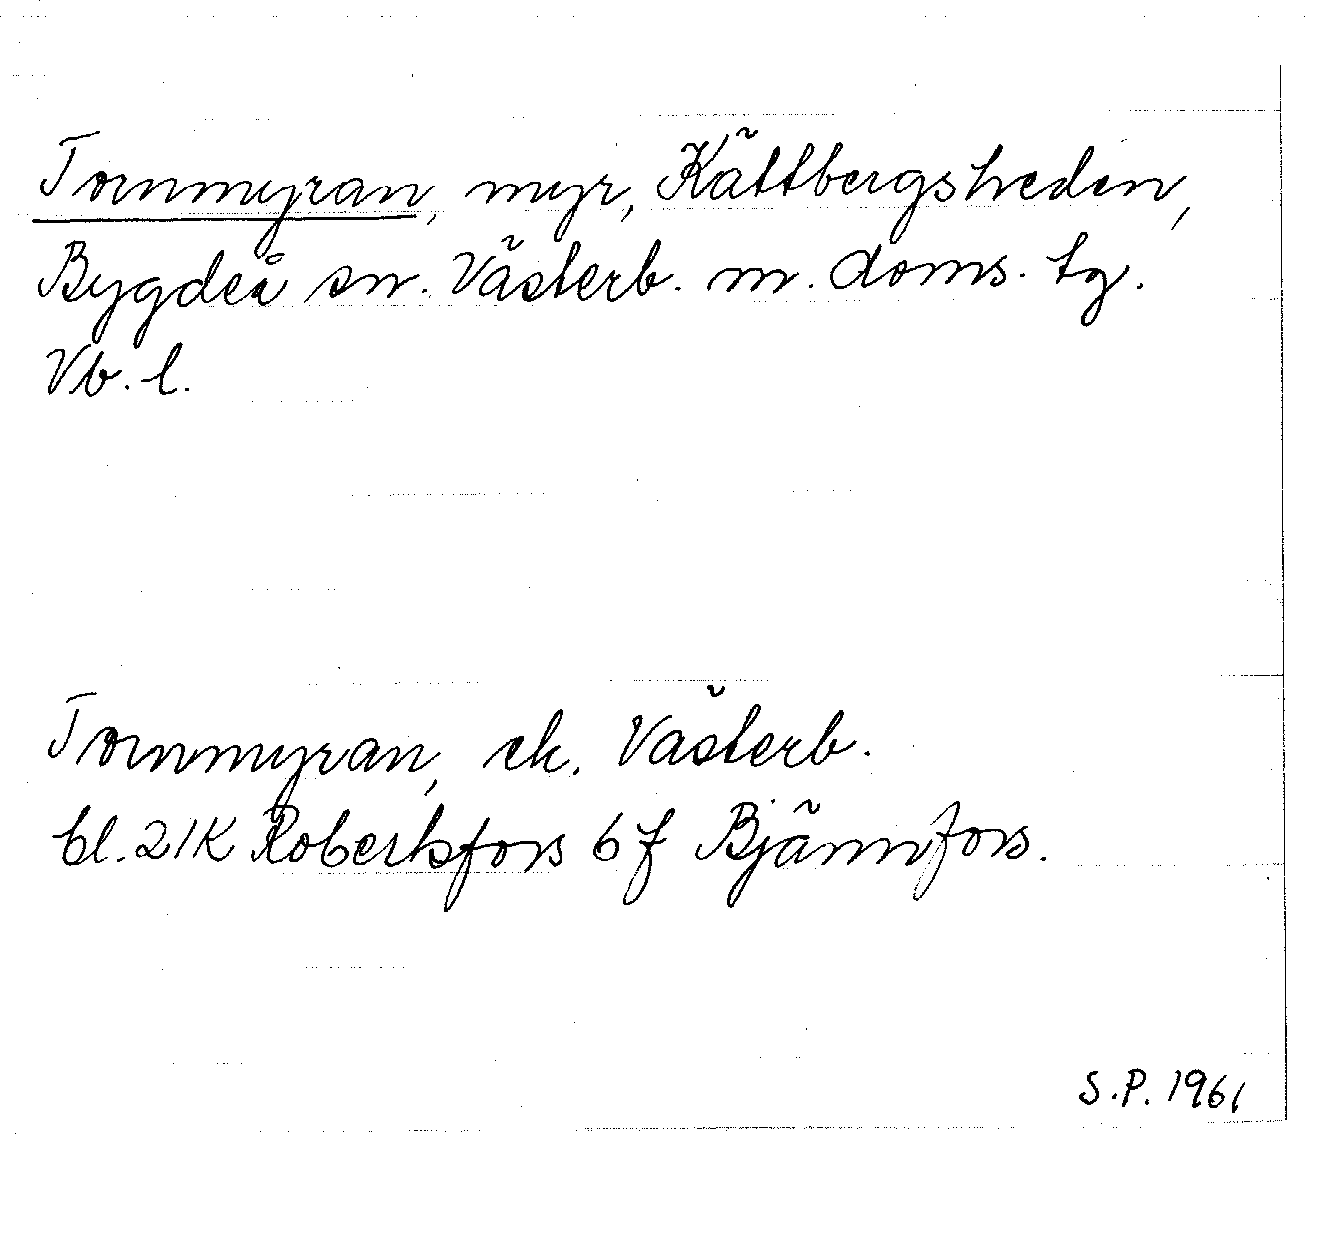 Tornmyran, myr, Kättbergsheden,
Bygdeå sn. Västerb. m. doms. tg.
Vb. l.
Tornmyran, ek. Västerb.
bl. 21K Robertsfors 6f Bjännfors.
S.P. 1961